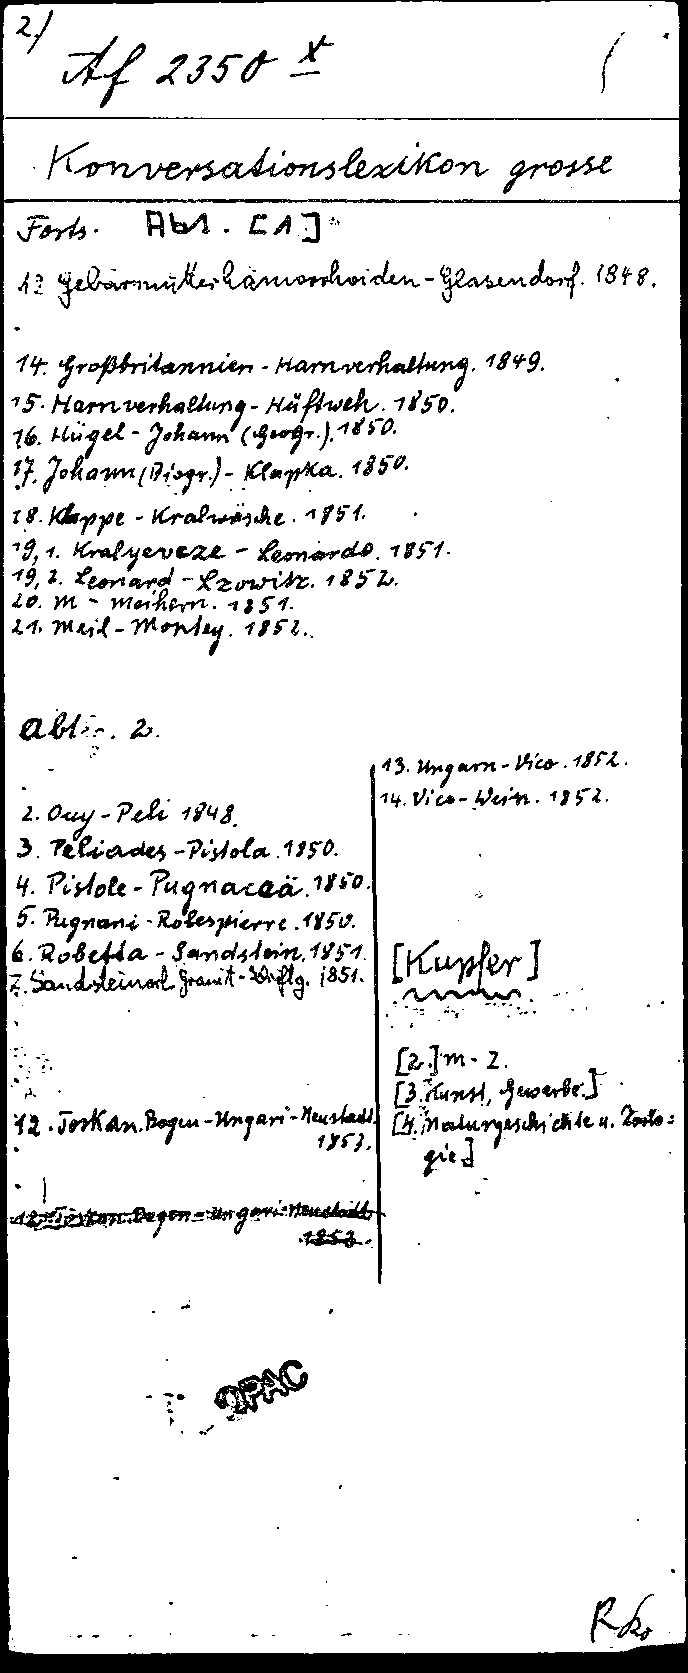 2)
Af 2350 x
Konversationslexikon grosse
Forts. Abt. [1]
13 Gebärmutterhämorrhoiden - Glasendorf. 1848.
14. Großbritannien - Harnverhaltung. 1849.
15. Harnverhaltung - Hüftweh. 1850.
16. Hügel - Johann (Geogr.). 1850.
17. Johann (Biogr.) - Klapka. 1850.
18. Klappe - Kralwäsche. 1851.
19,1. Kralyeveze - Leonardo. 1851.
19,2. Leonard - Lzowitz. 1852.
20. M - Meihern. 1851.
21. Meil - Montey. 1852.
Abt. 2.
2. Ouy - Peli 1848.
3. Peliades - Pistola. 1850.
4. Pistole - Pugnaceä. 1850.
5. Pugnani - Robespierre. 1850.
6. Robetta - Sandstein. 1851.
7. Sandsteinart. Granit - 1851.
12. Toskan. Bogen - Ungari - Neustadt.
1853.
12. Toskan. Bogen - Ungari - Neustadt
1853.
13. Ungarn - Vico. 1852.
14. Vico - Wein. 1852.
[Kupfer]
[2.] M - Z.
[3. Kunst, Gewerbe.]
[4. Naturgeschichte u.
gie.]
OPAC
Rko